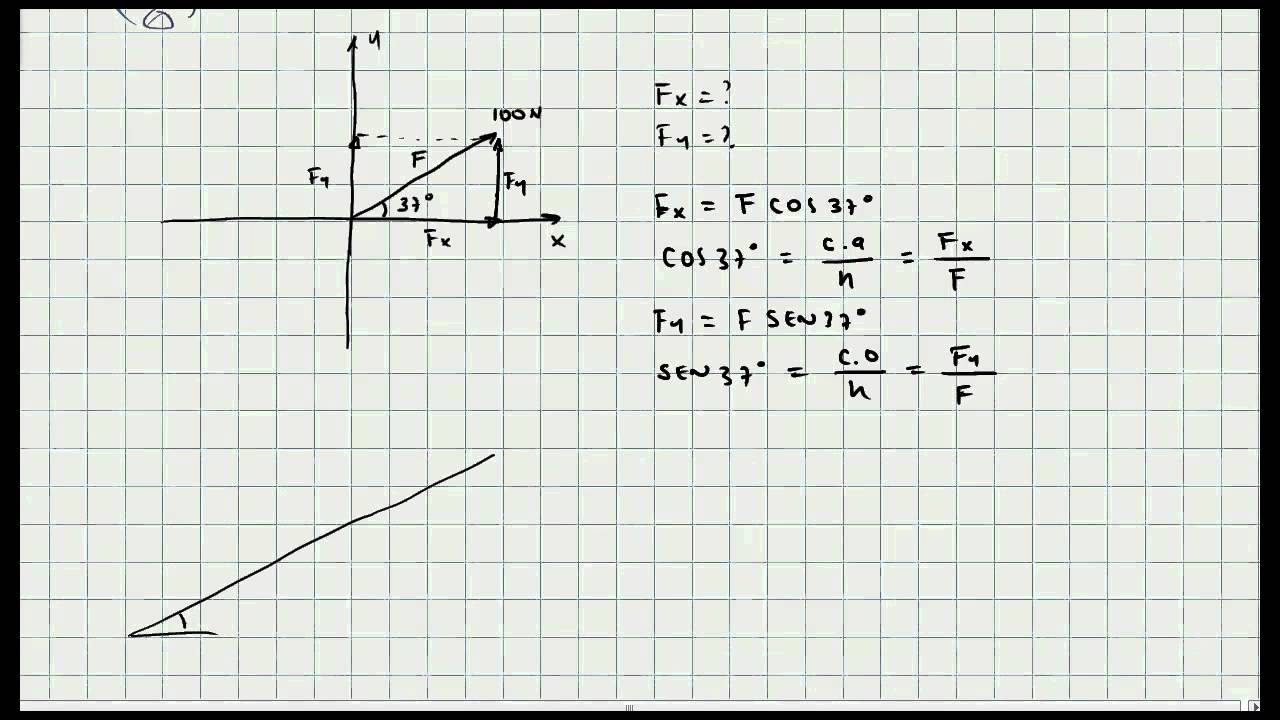 y
100N
F
Fy
Fy
37°
Fx
x
Fx = ?
Fy = ?
Fx = F COS 37°
COS 37° = c.a/h = Fx/F
Fy = F SEN 37°
SEN 37° = c.o/h = Fy/F